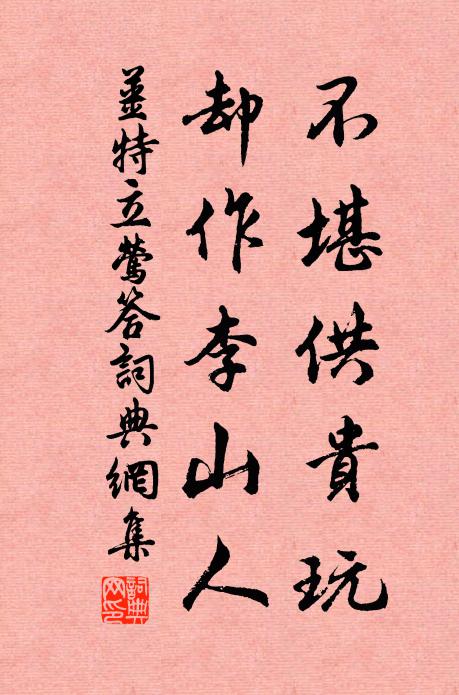 不堪供貴玩
却作李山人
姜特立鶯答詞典網集
詞典網印